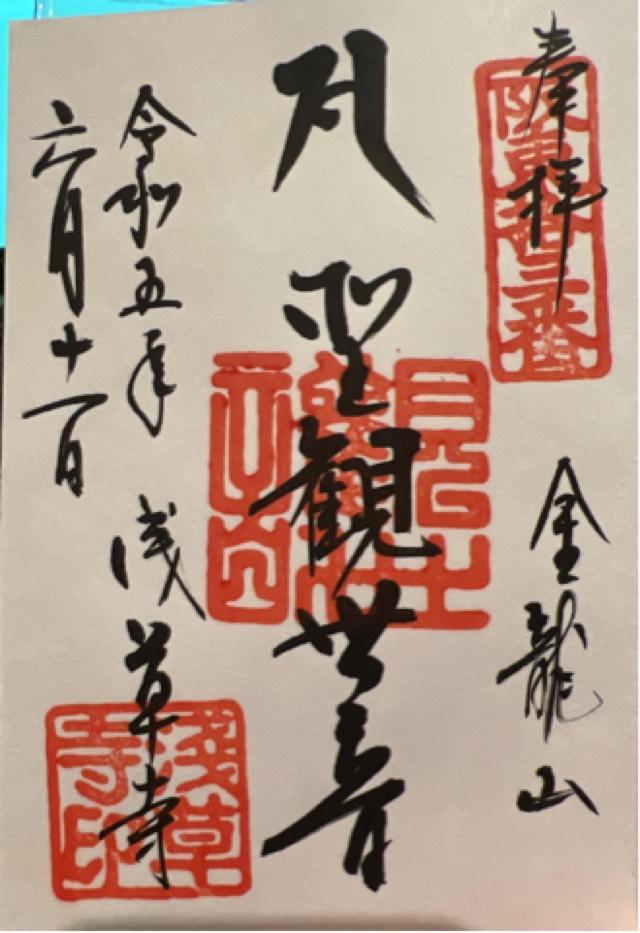 奉拝
阪東拾三番
金龍山
聖観世音
令和五年
六月十一日
浅草寺
淺草寺印